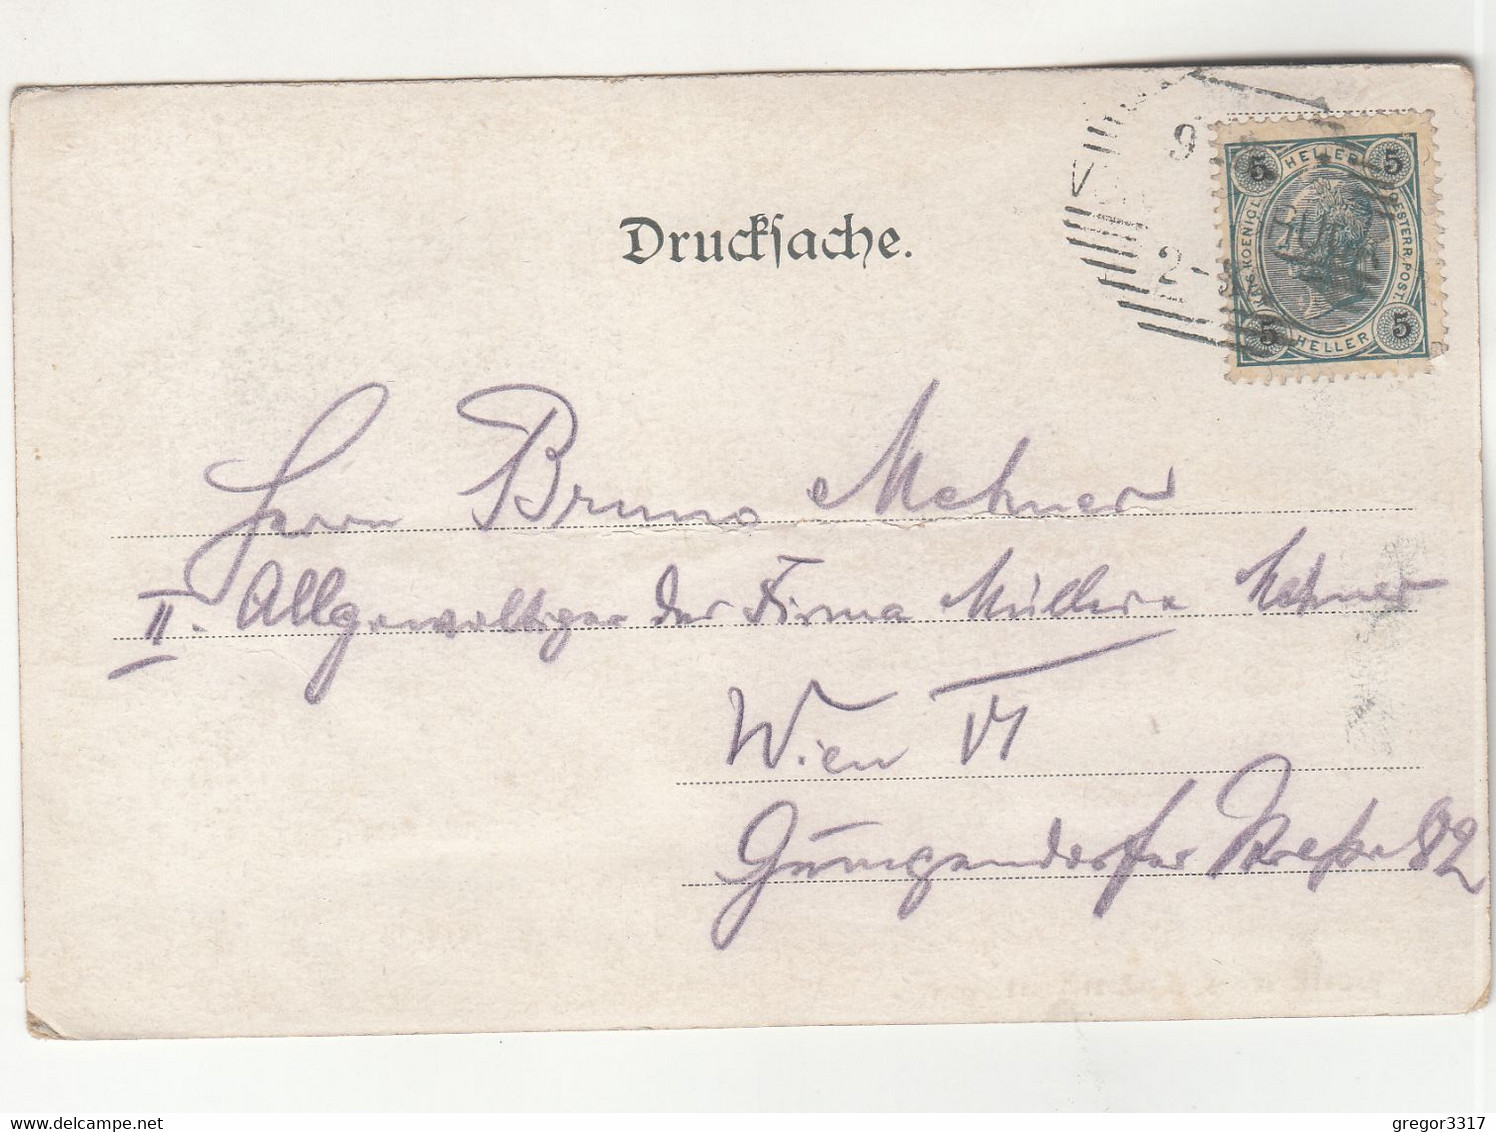 Drucksache.
5 HELLER 5
KAIS. KOENIGL. OESTERR. POST.
5 HELLER 5
9
2-
Herrn Bruno Metzner
II. Allgewaltiger der Firma Müller & Metzner
Wien VI
Gumpendorfer Straße 82
gregor3317